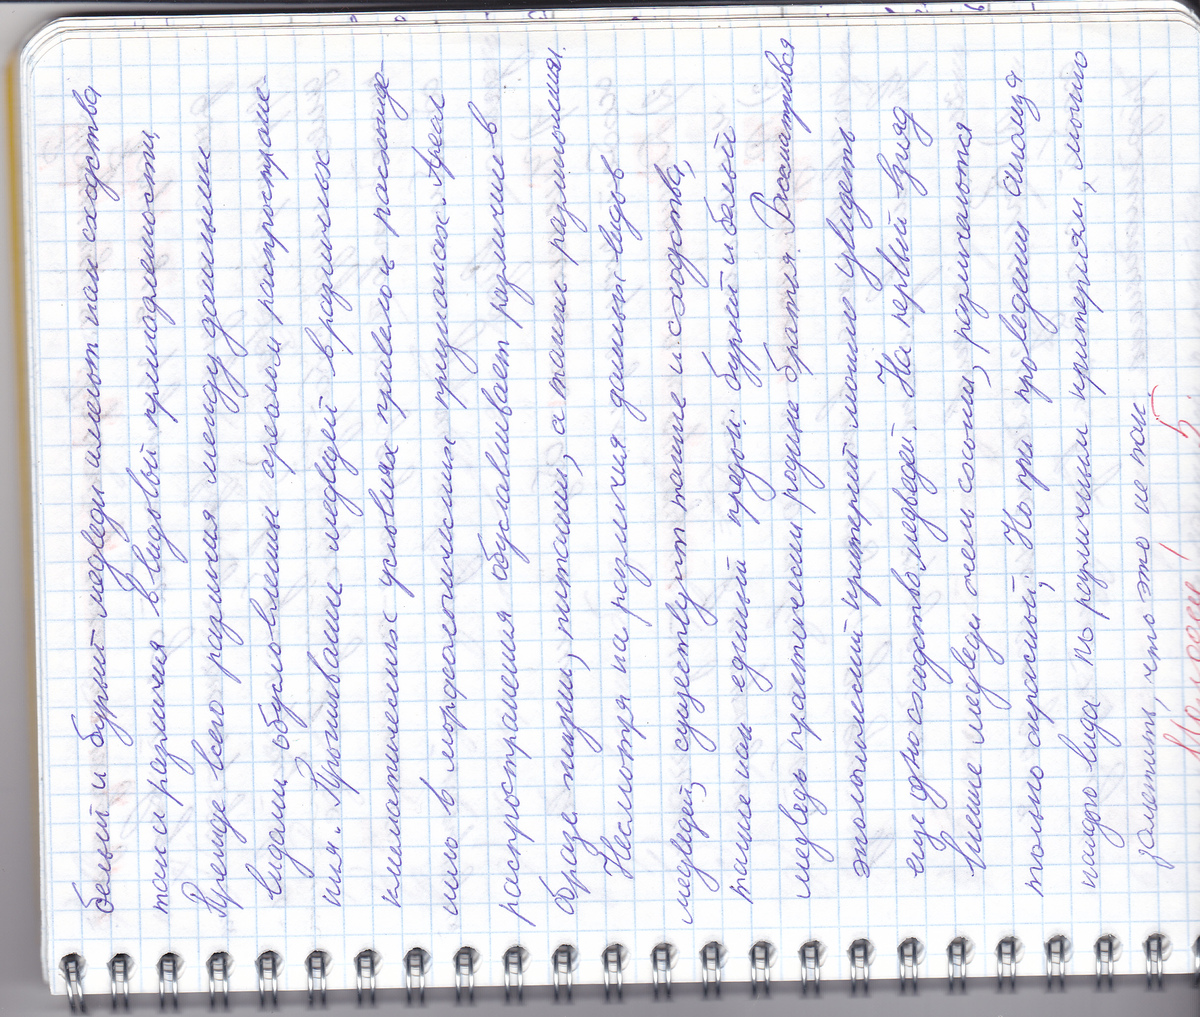 белый и бурый медведи имеют как сходства,
так и различия в видовой принадлежности.
Прежде всего различия между данными
видами, обусловлены ареалом распростране-
ния. Проживание медведей в различных
климатических условиях привело к расхожде-
нию в морфологических признаках. Ареал
распространения обуславливает различие в
образе жизни, питании, а также размножении.
Несмотря на различия данных видов
медведей, существуют также и сходства,
такие как единый предок. Бурый и белый
медведь практически родные братья. Рассматривая
этологический критерий можно увидеть
еще одно сходство медведей. На первый взгляд
внешне медведи очень схожи, различаются
только окраской. Но при проведении анализа
каждого вида по различным критериям, можно
заметить, что это не так.
Молодец! 5.